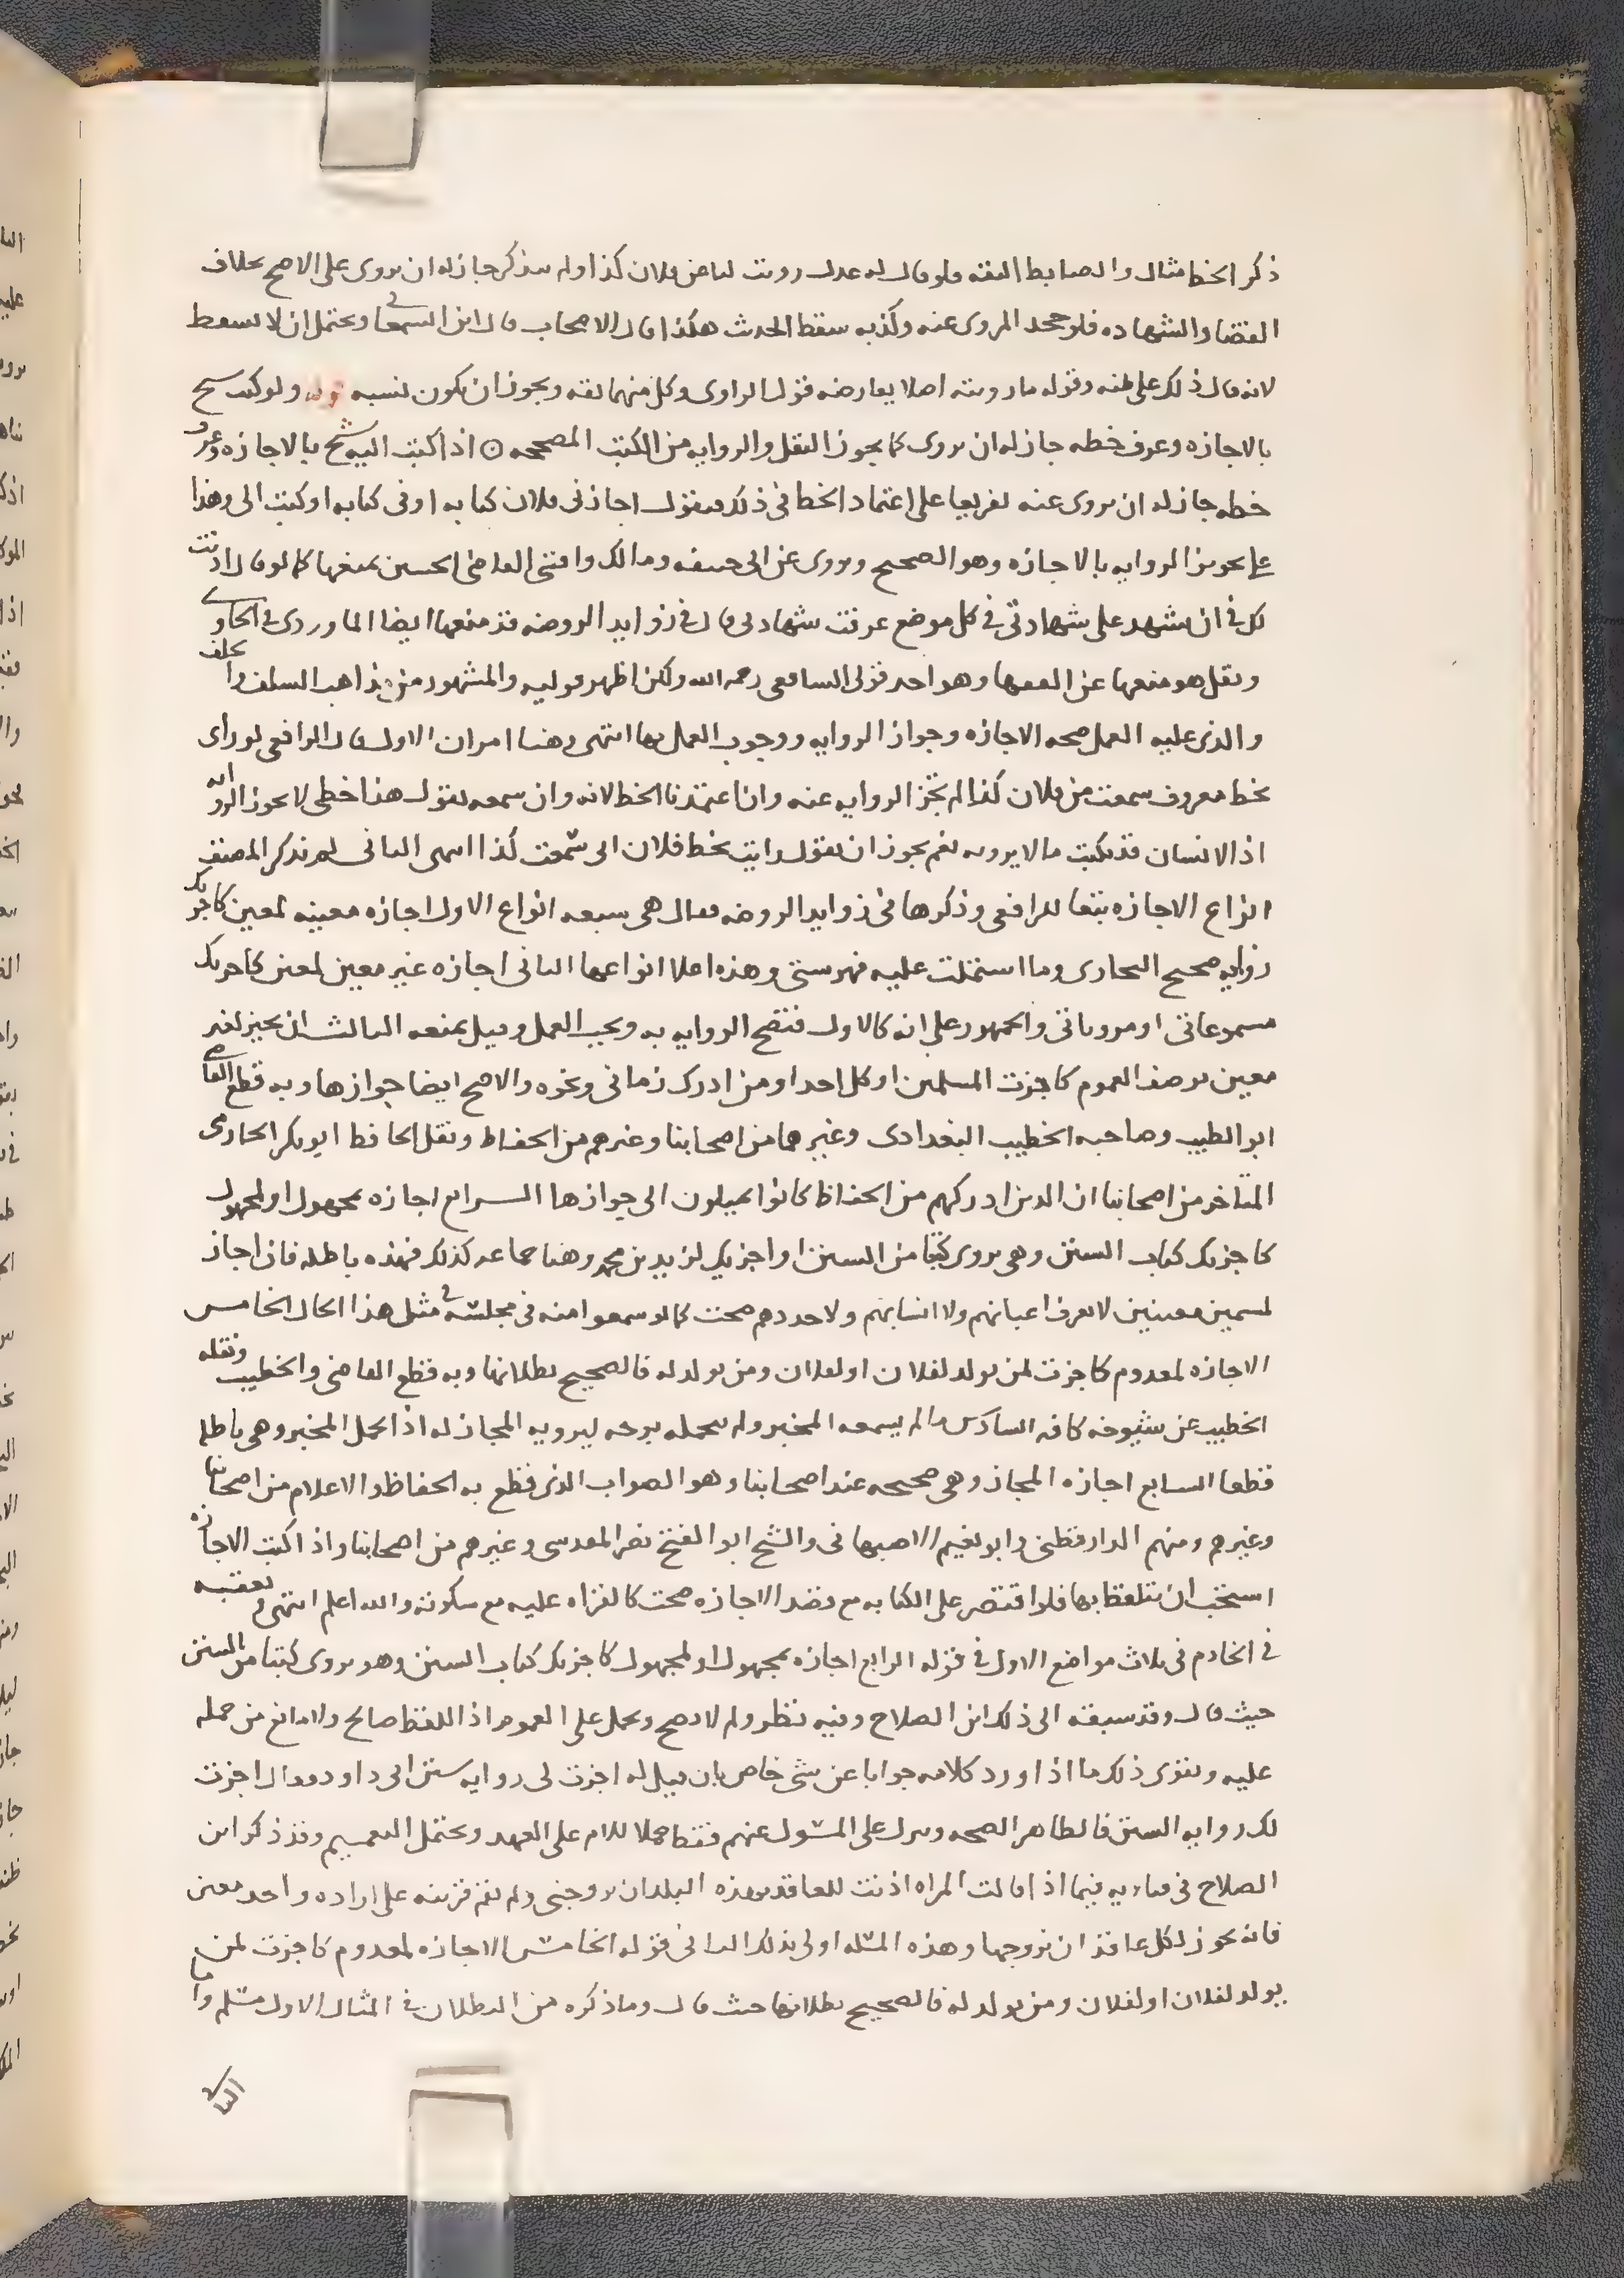 ذكر الخط مثال والضابط الثقة فلو قال له عدل رويت لنا عن فلان كذا ولم يتذكر جاز له ان يروى على الاصح بخلاف
القضا والشهاده فلو جحد المروى عنه وكذبه سقط الحديث هكذا قال الاصحاب قال ابن السمعانى ويحتمل ان لا يسقط
لانه قال ذلك على ظنه وقوله ما رويته اصلا يعارضه قول الراوى وكل منهما ثقه ويجوز ان يكون نسيه ولو كتب شيخ
بالاجازه وعرف خطه جاز له ان يروى كما يجوز النقل والروايه من الكتب المصححه ۞ اذا كتب اليه شيخ بالاجازه وعرف
خطه جاز له ان يروى عنه تفريعا على اعتماد الخط فى ذلك فيقول اجازنى فلان كتابه او فى كتابه او كتب الى وهذا
على تجويز الروايه بالاجازه وهو الصحيح ويروى عن ابى حنيفه ومالك وافتى القاضى الحسين بمنعها كما لو قال اذنت
لك فى ان تشهد على شهادتى فى كل موضع عرفت شهادتى قال فى زوايد الروضه قد منعها ايضا الماوردى فى الحاوى
ونقل هو منعها عن الفقها وهو احد قولى الشافعى رحمه الله ولكن اظهر قوليه والمشهور من مذاهب السلف والخلف
والذى عليه العمل صحه الاجازه وجواز الروايه ووجوب العمل بها انتهى وهنا امران الاول قال الرافعى لو راى
بخط معروف سمعت من فلان كذا لم تجز الروايه عنه وان اعتمدنا الخط لانه وان سمعه يقول هذا خطى لا يجوز الروايه
اذ الانسان قد يكتب ما لا يرويه نعم يجوز ان يقول رايت بخط فلان انى سمعت كذا انتهى الثانى لم يذكر المصنف
انواع الاجازه تبعا للرافعى وذكرها فى زوايد الروضه فقال هى سبعه انواع الاول اجازه معينه لمعين كاجزتك
روايه صحيح البخارى وما اشتملت عليه فهرستى وهذه اعلا انواعها الثانى اجازه غير معين لمعين كاجزتك
مسموعاتى او مروياتى والجمهور على انه كالاول فتصح الروايه به ويجب العمل وقيل بمنعه الثالث ان يجيز لغير
معين بوصف العموم كاجزت المسلمين او كل احد او من ادرك زمانى ونحوه والاصح ايضا جوازها وبه قطع القاضى
ابو الطيب وصاحبه الخطيب البغدادى وغيرهما من اصحابنا وغيرهم من الحفاظ ونقل الحافظ ابو بكر الحازمى
المتاخر من اصحابنا ان الذين ادركهم من الحفاظ كانوا يميلون الى جوازها الرابع اجازه بمجهول او لمجهول
كاجزتك كتاب السنن وهو يروى كتبا من السنن او اجزتك لزيد بن محمد وهنا جماعه كذلك فهذه باطله فان اجاز
لمسمين معينين لا يعرف اعيانهم ولا انسابهم ولا عددهم صحت كما لو سمعوا منه فى مجلسه فى مثل هذا الحال الخامس
الاجازه لمعدوم كاجزت لمن يولد لفلان او لفلان ومن يولد له فالصحيح بطلانها وبه قطع القاضى والخطيب ونقله
الخطيب عن شيوخه كافه السادس ما لم يسمعه المخبر ولم يتحمله بوجه ليرويه المجاز له اذا تحمل المخبر وهى باطله
قطعا السابع اجازه المجاز وهى صحيحه عند اصحابنا وهو الصواب الذى قطع به الحفاظ والاعلام من اصحابنا
وغيرهم ومنهم الدارقطنى وابو نعيم الاصبهانى والشيخ ابو الفتح نصر المقدسى وغيرهم من اصحابنا واذا كتب الاجازه
استحب ان يتلفظ بها فلو اقتصر على الكتابه مع قصد الاجازه صحت كالقراه عليه مع سكوته والله اعلم انتهى وتعقبه
فى الخادم فى ثلاث مواضع الاول فى قوله الرابع اجازه بمجهول او لمجهول كاجزتك كتاب السنن وهو يروى كتبا من السنن
حيث قال وقد سبقه الى ذلك ابن الصلاح وفيه نظر ولم لا يصح ويحمل على العموم اذ اللفظ صالح ولا مانع من حمله
عليه ويقوى ذلك ما اذا ورد كلامه جوابا عن شى خاص بان قيل له اجزت لى روايه سنن ابى داود فقال اجزت
لك روايه السنن فالظاهر الصحه وينزل على المسئول عنهم فقط حملا للام على العهد ويحتمل التعميم وقد ذكر ابن
الصلاح فى فتاويه فيما اذا قالت المراه اذنت للعاقد بهذه البلد ان يزوجنى ولم تقم قرينه على اراده واحد معين
فانه يجوز لكل عاقد ان يزوجها وهذه المسئله اولى بذلك الثانى قوله الخامس الاجازه لمعدوم كاجزت لمن
يولد لفلان او لفلان ومن يولد له فالصحيح بطلانها حيث قال وما ذكره من البطلان فى المثال الاول مسلم واما
الثانى